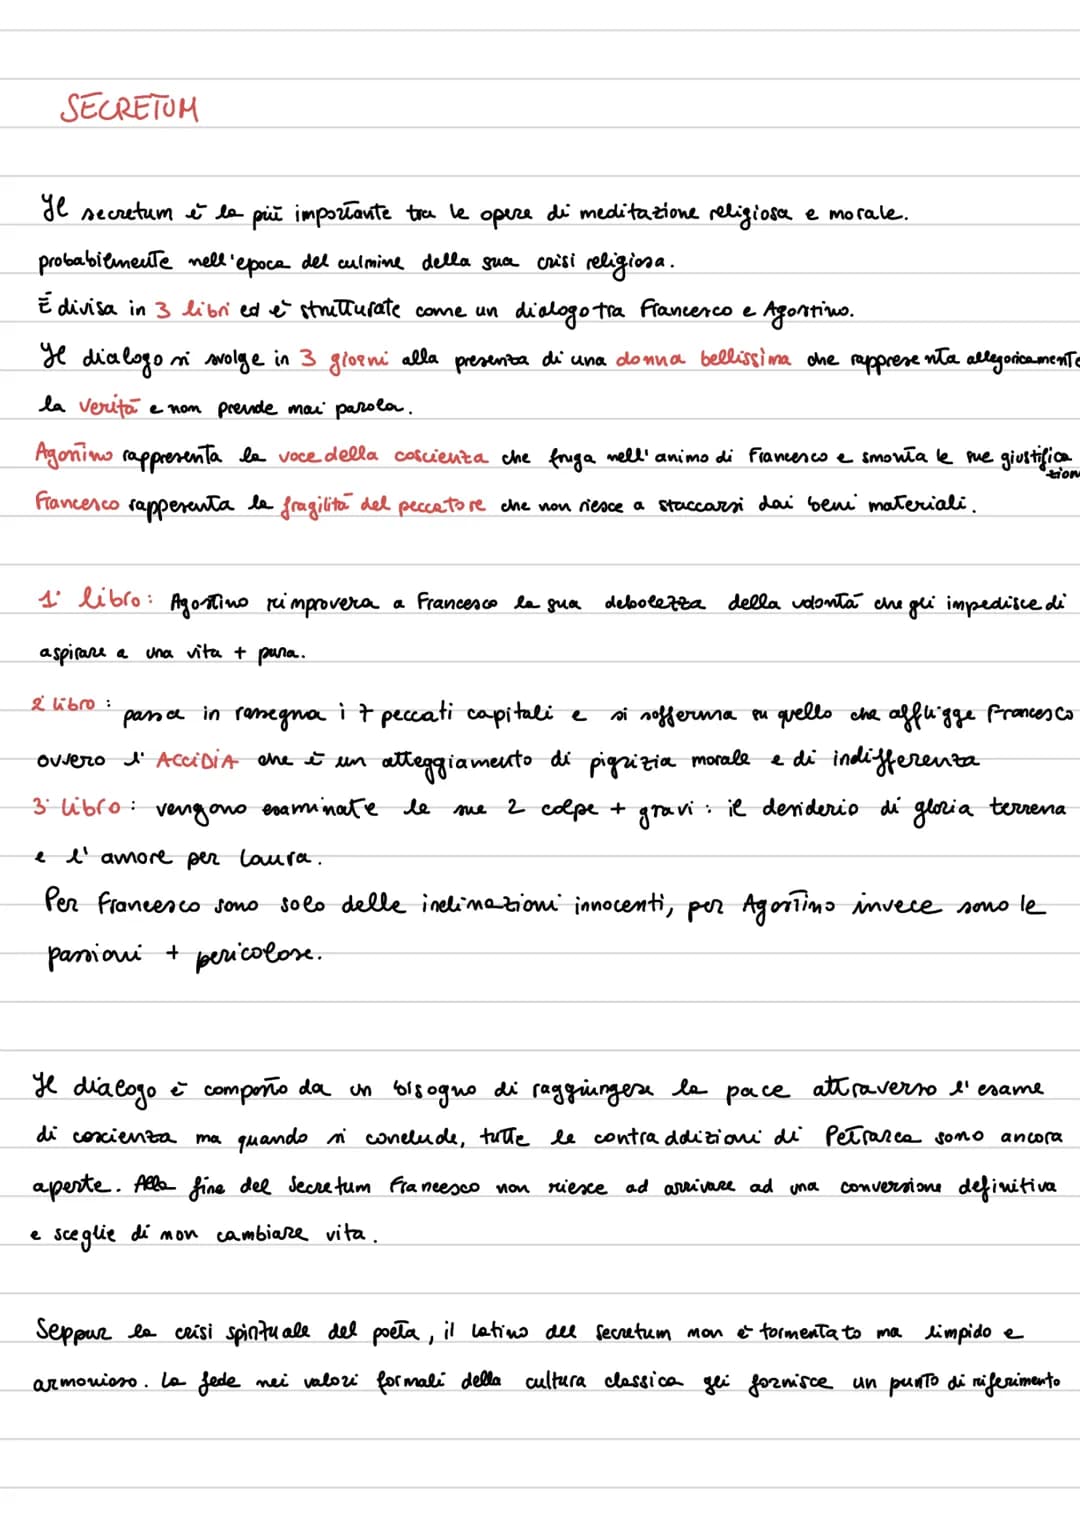 SECRETUM
Il secretum è la più importante tra le opere di meditazione religiosa e morale.
probabilmente nell'epoca del culmine della sua crisi religiosa.
È divisa in 3 libri ed è strutturate come un dialogo tra Francesco e Agostino.
Il dialogo si svolge in 3 giorni alla presenza di una donna bellissima che rappresenta allegoricamente
la verità e non prende mai parola.
Agostino rappresenta la voce della coscienza che fruga nell'animo di Francesco e smonta le sue giustifica
zion
Francesco rappesenta la fragilità del peccatore che non riesce a staccarsi dai beni materiali.
1° libro: Agostino rimprovera a Francesco la sua debolezza della volontà che gli impedisce di
aspirare a una vita + pura.
2° libro: passa in rassegna i 7 peccati capitali e si sofferma su quello che affligge Francesco
ovvero l'ACCIDIA che è un atteggiamento di pigrizia morale e di indifferenza
3° libro: vengono esaminate le sue 2 colpe + gravi: il desiderio di gloria terrena
e l'amore per Laura.
Per Francesco sono solo delle inclinazioni innocenti, per Agostino invece sono le
passioni + pericolose.
Il dialogo è composto da un bisogno di raggiungere la pace attraverso l'esame
di coscienza ma quando si conclude, tutte le contraddizioni di Petrarca sono ancora
aperte. Alla fine del Secretum Francesco non riesce ad arrivare ad una conversione definitiva
e sceglie di non cambiare vita.
Seppur la crisi spirituale del poeta, il latino del Secretum non è tormentato ma limpido e
armonioso. La fede nei valori formali della cultura classica gli fornisce un punto di riferimento